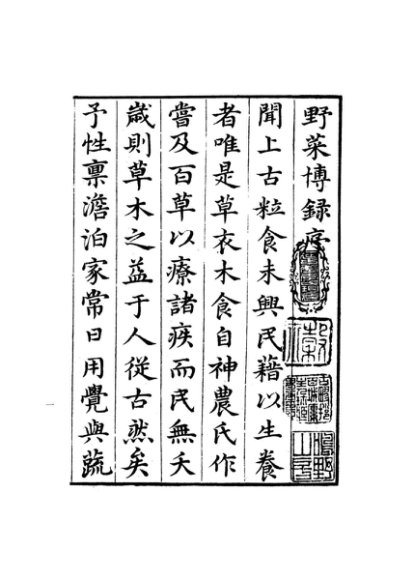 野菜博録序
聞上古粒食未興民藉以生養
者唯是草衣木食自神農氏作
嘗及百草以療諸疾而民無夭
歳則草木之益于人從古然矣
予性禀澹泊家常日用覺與蔬